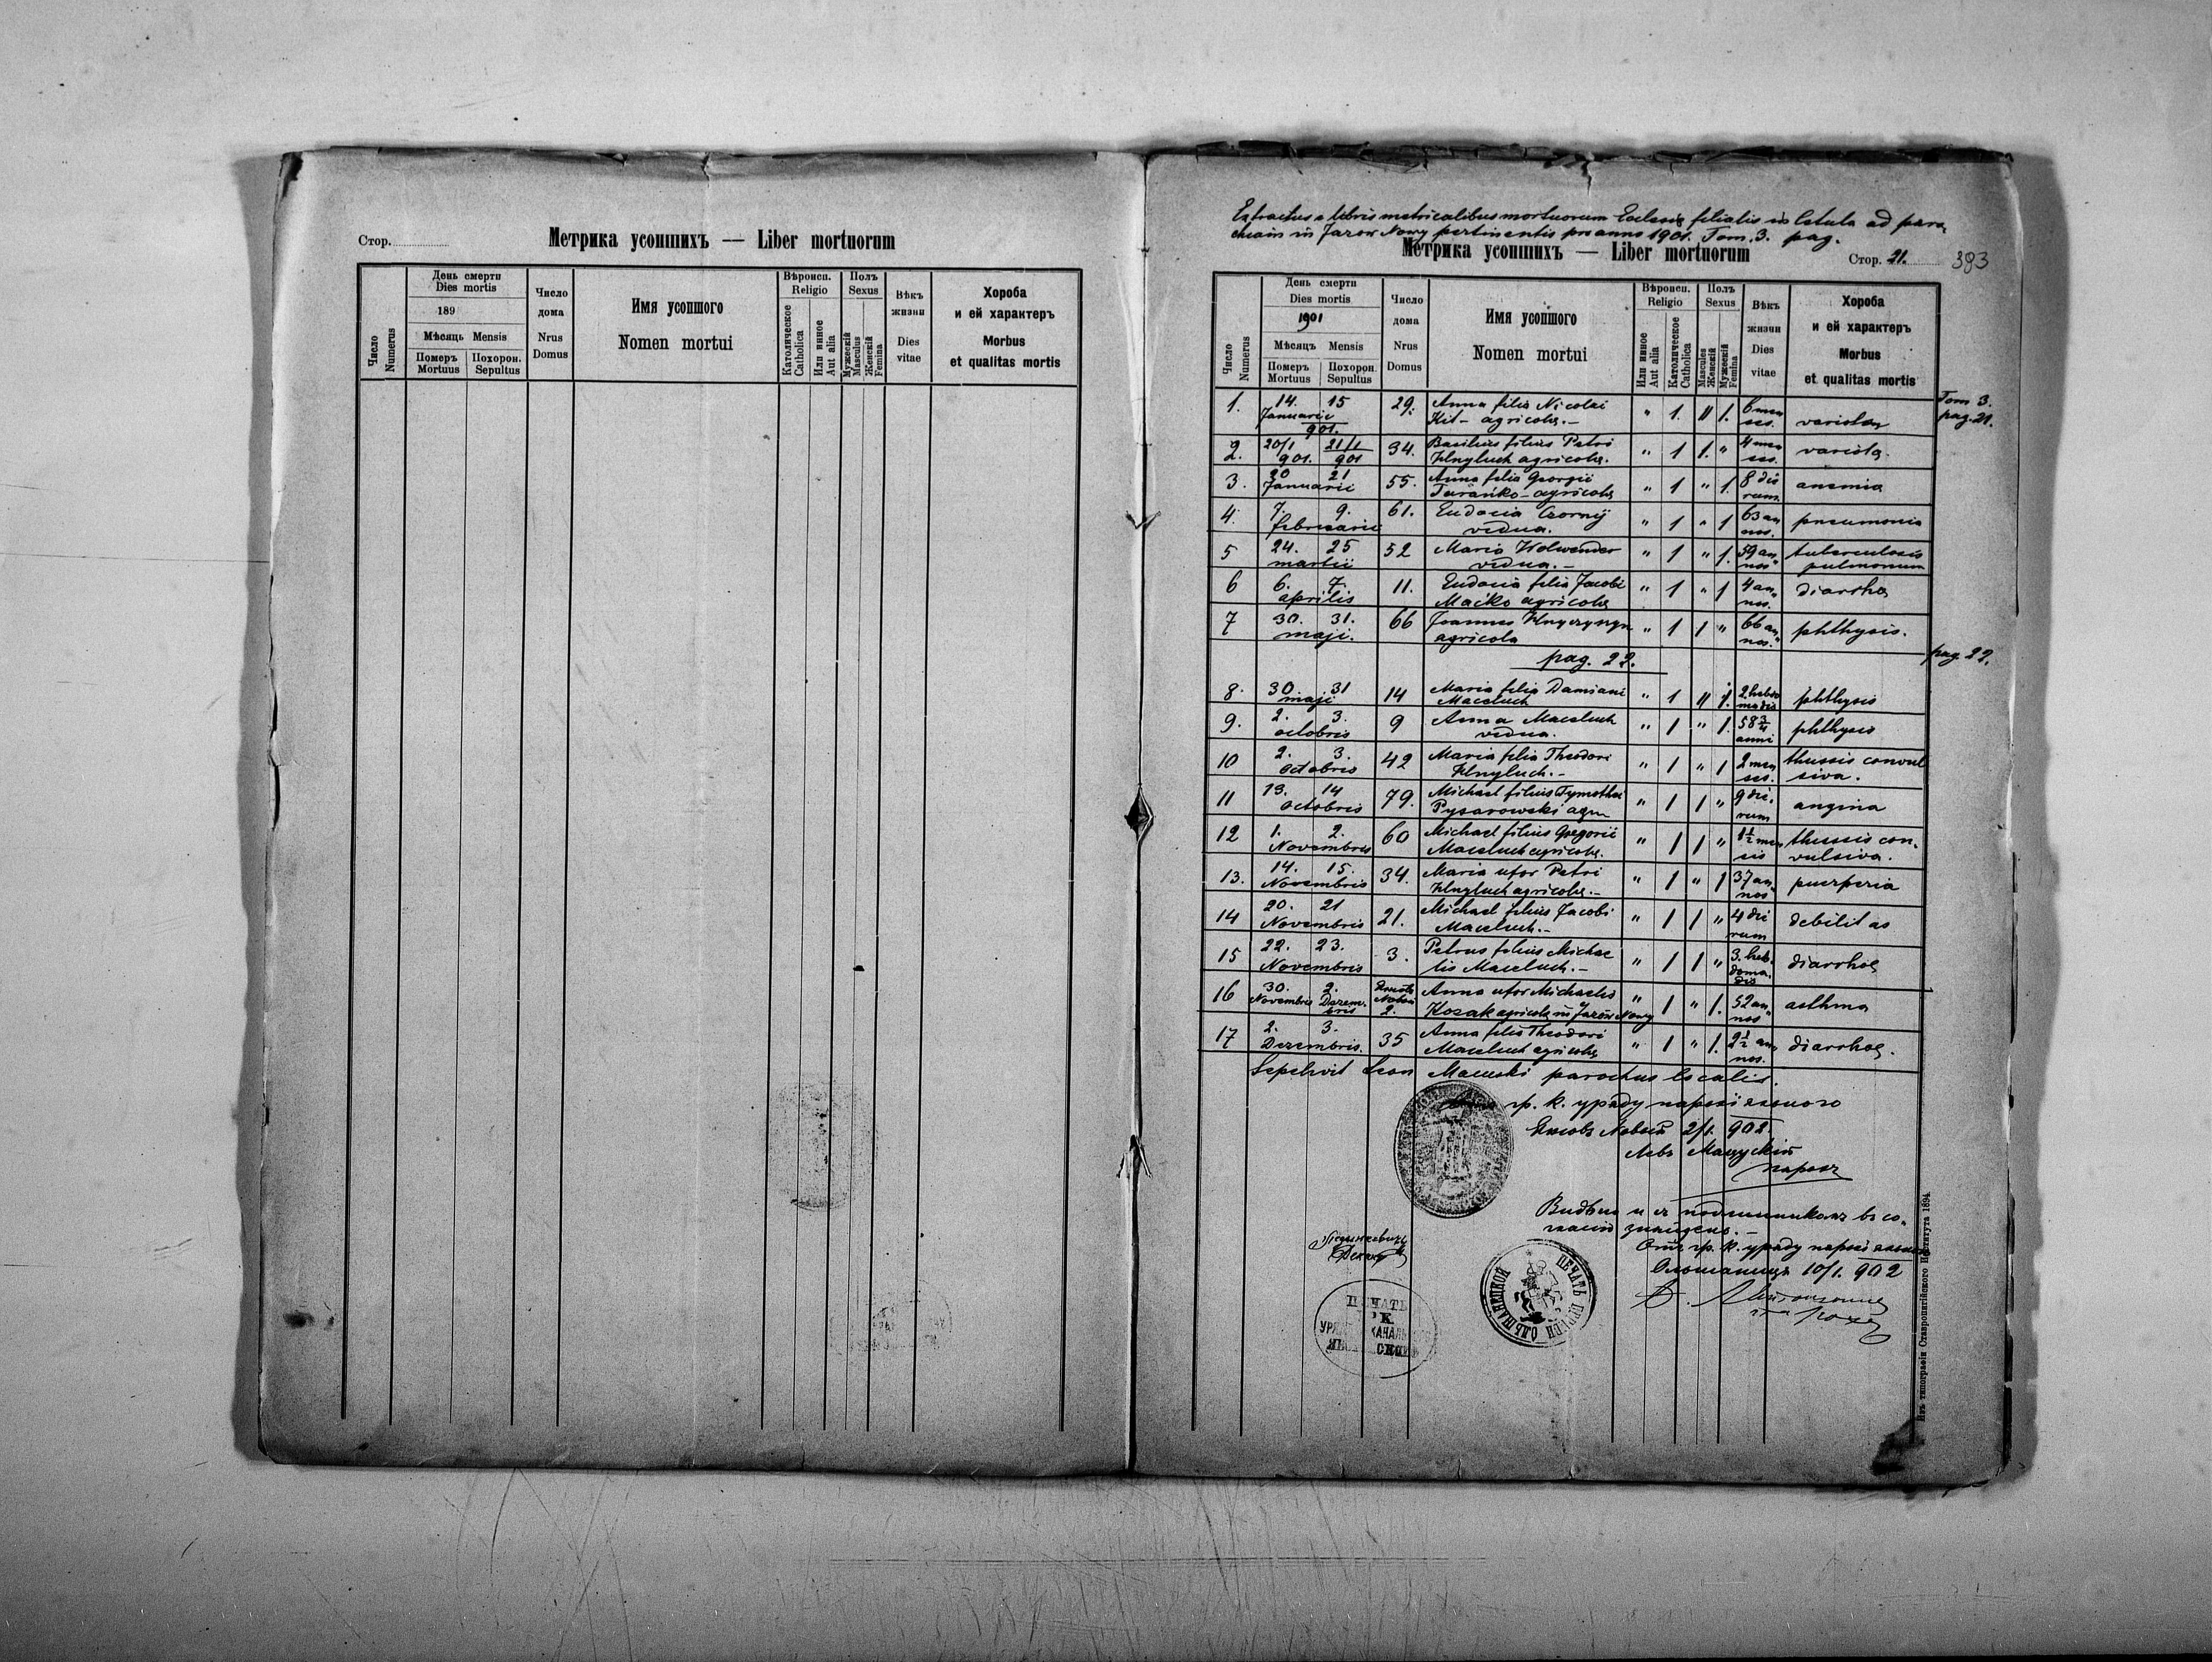 Стор.
Метрика усопшихъ — Liber mortuorum
Число
Numerus
День смерти
Dies mortis
189
Мѣсяць Mensis
Померъ
Mortuus
Похорон.
Sepultus
Число
дома
Nrus
Domus
Имя усопшого
Nomen mortui
Вѣроисп.
Religio
Католическое
Catholica
Или инное
Aut alia
Полъ
Sexus
Мужескій
Masculus
Женскій
Femina
Вѣкъ
жизни
Dies
vitae
Хороба
и ей характеръ
Morbus
et qualitas mortis
Extractus e libris metricalibus mortuorum Eclesie filialis in Cetula ad paro-
chiam in Jazow Nowy pertinentis pro anno 1901. Tom. 3. pag.
Метрика усопшихъ — Liber mortuorum
Стор. 21.
393
Число
Numerus
День смерти
Dies mortis
1901
Мѣсяцъ Mensis
Померъ
Mortuus
Похорон.
Sepultus
Число
дома
Nrus
Domus
Имя усопшого
Nomen mortui
Вѣроисп.
Religio
Или инное
Aut alia
Католическое
Catholica
Полъ
Sexus
Masculus
Женскій
Мужескій
Femina
Вѣкъ
жизни
Dies
vitae
Хороба
и ей характеръ
Morbus
et qualitas mortis
Tom 3.
pag. 21.
1. 14. 15 29. Anna filia Nicolai " 1. " 1. 6 men
Januarii 901. Kit - agricolae. - ses. variola
2. 20/1 21/1 34. Basilius filius Petri " 1 1. " 4 men
901. 901 agricolae. ses. variola
3. 20 21 55. Anna filia Georgii " 1 " 1. 8 die
Januarii Tarańko - agricolae rum anemia
4. 7. 9. 61. Eudocia Czornij " 1 " 1 63 an
februarii vidua. nos. pneumonia
5 24. 25 52 Maria Wolwender " 1 " 1. 59 an tuberculosis
martii vidua. - nos pulmonum
6 6. 7. 11. Eudocia filia Jacobi " 1 " 1 4 an
aprilis Maćko agricolae nos. diarrhoe
7 30. 31. 66 Joannes " 1 1 " 66 an
maji. agricola nos. phthysis.
pag. 22.
pag. 22.
8. 30 31 14 Maria filia Damiani " 1 " 1. 2 hebdo
maji Maceluch madis phthysis
9. 2. 3. 9 Anna Maceluch " 1 " 1. 58 3/4
octobris vidua. anni phthysis
10 2. 3. 42 Maria filia Theodori " 1 " 1 2 men thussis convul
Octobris ses. siva.
11 13. 14 79. Michael filius Tymothei " 1 1 " 9 die-
octobris Pysarowski agri rum angina
12 1. 2. 60 Michael filius Gregorii " 1 1 " 1 1/2 men thussis con-
Novembris Maceluch agricolae. sis vulsiva.
13. 14. 15. 34. Maria uxor Petri " 1 " 1 37 an
Novembris agricolae. - nos puerperia
14 20. 21 21. Michael filius Jacobi " 1 1 " 4 die
Novembris Maceluch. - rum debilitas
15 22. 23. 3. Petrus filius Michae " 1 1 " 3. heb-
Novembris lis Maceluch. - doma-
dis diarrhoe
16 30. 2. Anna uxor Michaelis " 1 " 1. 52 an
Novembris Dezem-
bris 2. Kozak agricolae in Jazów Nowy nos asthma
17 2. 3. 35 Anna filia Theodori " 1 " 1. 2 1/2 an
Dezembris. Maceluch agricolae nos. diarrhoe.
Sepelivit Leon Macuski parochus localis.
гр. к. уряду парохіяльного
Язовъ Новый 2/1. 902.
Левъ Мацускій
парохъ
Видѣно и съ подлинникомъ въ со-
гласіи
Отъ гр. к. уряду парохіяльн
Ольшаница 10/1. 902
Деканъ
ПЕЧАТЬ ЦЕРКВИ ОЛЬШАНЕЦКОЙ
ПЕЧАТЬ
Изъ типографіи Ставропигійского Института 1894.